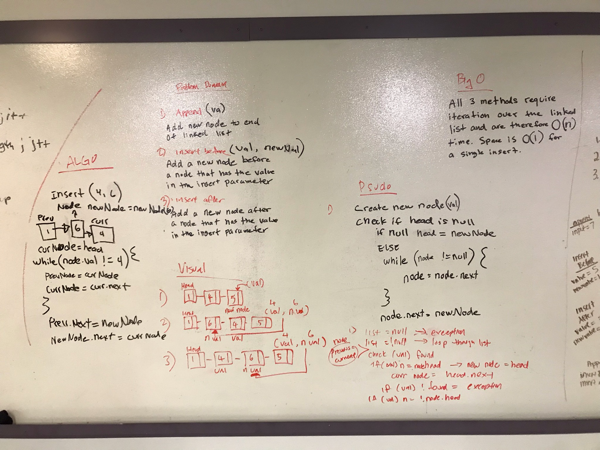 ALGO
Insert (4, 6)
Node newNode = newNode(6)
Prev
Curr
1
6
4
currNode = head
while (node.val != 4) {
PrevNode = curNode
CurrNode = cur.next
}
Prev.Next = newNode
NewNode.next = currNode
Problem Domain
1) Append (val)
Add new node to end
of linked list
2) Insert before (val, newVal)
Add a new node before
a node that has the value
in the insert parameter
3) Insert after
Add a new node after
a node that has the value
in the insert parameter
Visual
1)
Head
1
4
5
(val)
2)
Head
new node
1
6
4
5
4 6
(val, n val)
n val
val
3)
Head
1
4
6
5
4 6
(val, n val)
val
n val
Big O
All 3 methods require
iteration over the linked
list and are therefore O(n)
time. Space is O(1) for
a single insert.
Psudo
1)
Create new node (val)
Check if head is null
if null head = newNode
ELSE
while (node != null) {
node = node.next
}
node.next = newNode
node
previous
current
list = null → exception
list = !null → loop through list
check (val) found
→ new node = head
curr node = head.next
if (val) !found = exception